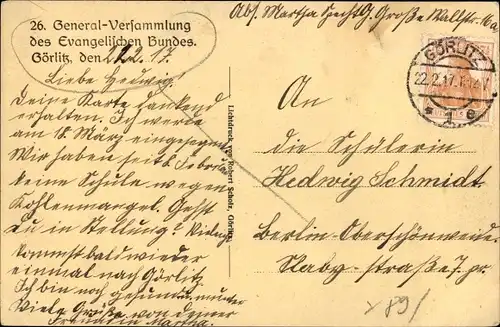 Abs. Martha Hecht, G. Große Wallstr.
26. General-Versammlung
des Evangelischen Bundes.
Görlitz, den 22.2.17.
Liebe Hedwig!
Deine Karte dankend
erhalten. Ich werde
am 18. März eingesegnet.
Wir haben seit 6. Febr.
keine Schule wegen
Kohlenmangel. Gehst
Du in Stellung?
kommst bald wieder
einmal nach Görlitz.
Ich bin noch gesund u. munter
Viele Grüße von deiner
Freundin Martha.
Lichtdruck von Robert Scholz, Görlitz.
GÖRLITZ
22.2.17.
* 1 e
An
die Schülerin
Hedwig Schmidt
Berlin-Oberschönweide
straße 7. pr.
89/